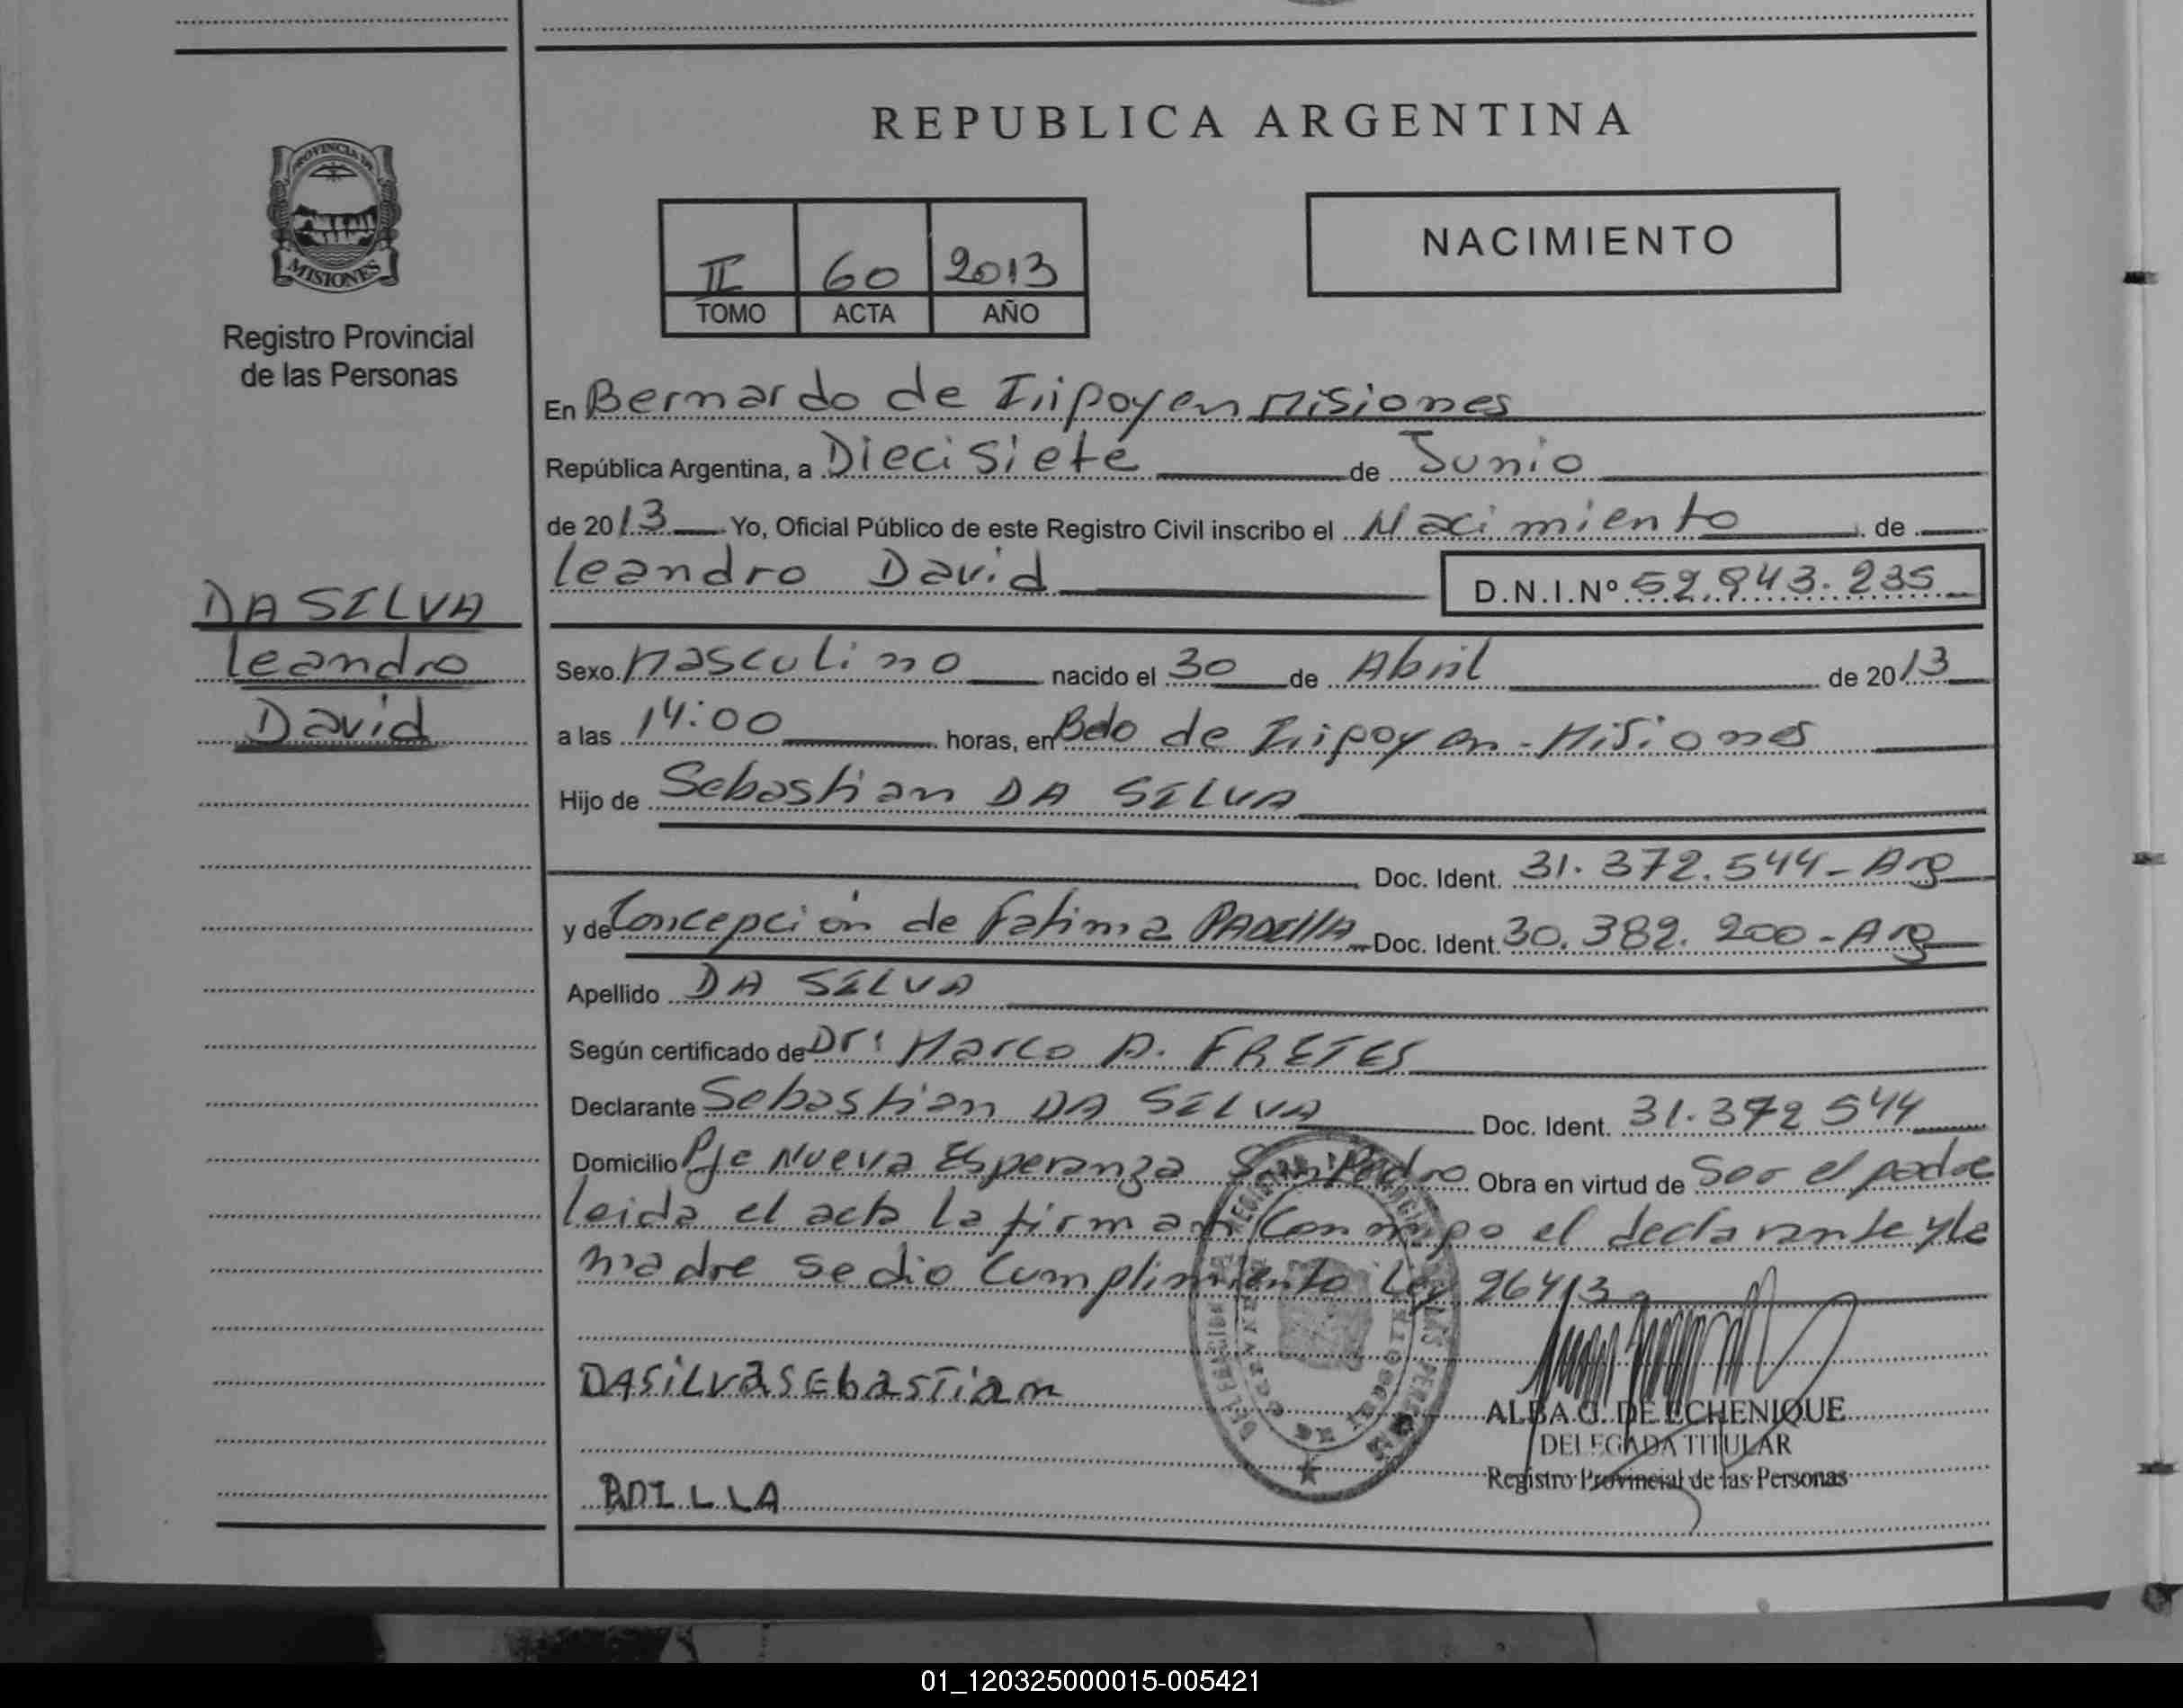 REPUBLICA ARGENTINA
PROVINCIA DE
MISIONES
Registro Provincial
de las Personas
II 60 2013
TOMO ACTA AÑO
NACIMIENTO
En Bernardo de Iripoyen Misiones
República Argentina, a Diecisiete de Junio
de 2013 Yo, Oficial Público de este Registro Civil inscribo el Nacimiento de
Leandro David
D.N.I.Nº 52.943.235
DA SILVA
Leandro
David
Sexo Masculino nacido el 30 de Abril de 2013
a las 14:00 horas, en Bdo de Iripoyen - Misiones
Hijo de Sebastian DA SILVA
Doc. Ident. 31.372.544 - Arg
y de Concepción de Fatima PADILLA Doc. Ident. 30.382.200 - Arg
Apellido DA SILVA
Según certificado de Dr: Marco A. FRETES
Declarante Sebastian DA SILVA Doc. Ident. 31.372 544
Domicilio Pje Nueva Esperanza San Pedro Obra en virtud de Ser el padre
leida el acta la firman Conmigo el declarante y la
madre se dio Cumplimiento Ley 26413
DASILVASEbASTian
ALBA G. DE ECHENIQUE
DELEGADA TITULAR
Registro Provincial de las Personas
PDILLA
01_120325000015-005421